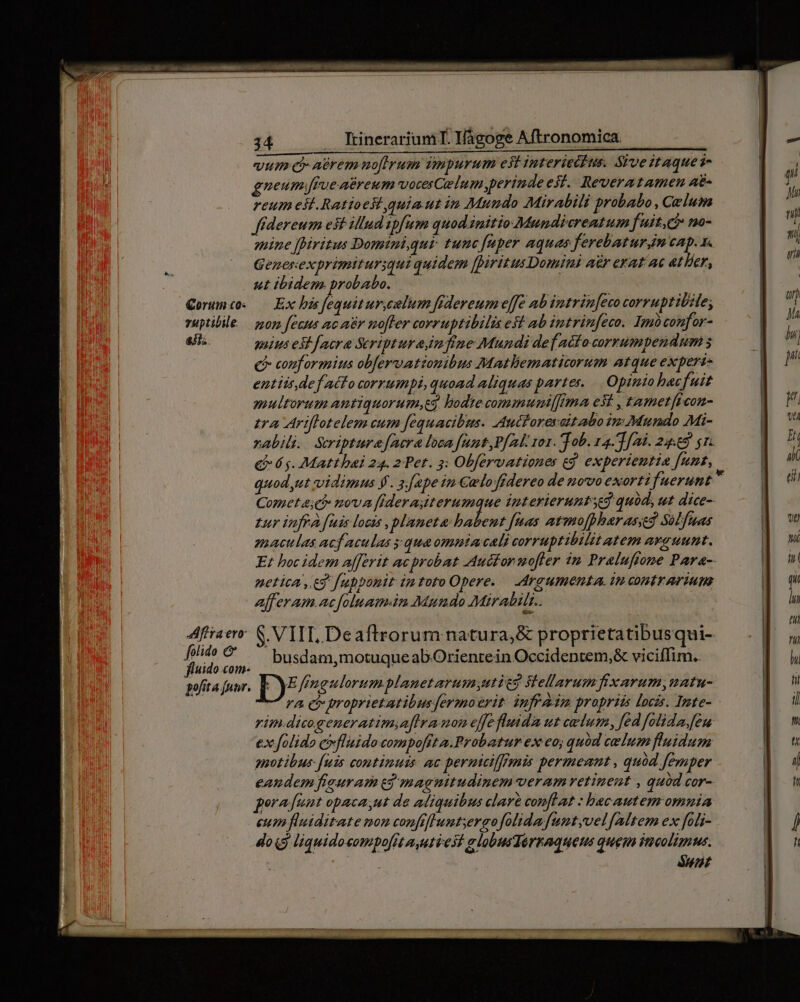 34 Itinerarium I. Isagoge Astronomica
vum & aërem nostrum impurum est interiectus. Sive itaque i-
gneum, sive aëreum voces Cælum, perinde est. Revera tamen aë-
reum est. Ratio est, quia ut in Mundo Mirabili probabo, Cælum
sidereum est illud ipsum quod initio Mundi creatum fuit, & no-
mine spiritus Domini, qui tunc super aquas ferebatur, in cap. 1.
Genes. exprimitur; qui quidem spiritus Domini aër erat ac æther,
ut ibidem probabo.
Cœlum co- Ex his sequitur, cælum sidereum esse ab intrinseco corruptibile,
rruptibile non secus ac aër noster corruptibilis est ab intrinseco. Imò confor-
est. mius est sacræ Scripturæ, in fine Mundi de facto corrumpendum;
& conformius observationibus Mathematicorum atque experi-
entiis, de facto corrumpi, quoad aliquas partes. Opinio hæc fuit
multorum antiquorum, & hodie communissima est, tametsi con-
tra Aristotelem cum sequacibus. Auctores citabo in Mundo Mi-
rabili. Scripturæ sacræ loca sunt, Psal. 101. Job. 14. Isai. 24. & 51.
& 65. Matthæi 24. 2 Pet. 3: Observationes & experientiæ sunt,
quod, ut vidimus §. 3. sæpe in Cælo sidereo de novo exorti fuerunt
Cometæ, & nova sidera, iterumque interierunt; & quòd, ut dice-
tur infrà suis locis, planetæ habent suas atmosphæras, & Sol suas
maculas ac faculas; quæ omnia cæli corruptibilitatem arguunt.
Et hoc idem asserit ac probat Auctor noster in Prælusione Paræ-
netica, & supponit in toto Opere. Argumenta in contrarium
afferam ac soluam in Mundo Mirabili.
Astra ero §. VIII. De astrorum natura, & proprietatibus qui-
solido & busdam, motuque ab Oriente in Occidentem, & vicissim.
fluido com-
posita sunt. DE singulorum planetarum, uti & stellarum fixarum, natu-
ra & proprietatibus sermo erit infrà in propriis locis. Inte-
rim dico generatim, astra non esse fluida ut cælum, sed solida, seu
ex solido & fluido composita. Probatur ex eo, quòd cælum fluidum
motibus suis continuis ac perniciissimis permeant, quòd semper
eandem figuram & magnitudinem veram retinent, quòd cor-
pora sunt opaca, ut de aliquibus clarè constat: hæc autem omnia
cum fluiditate non consistunt; ergo solida sunt, vel saltem ex soli-
do & liquido composita, uti est globus Terraqueus quem incolimus.
Sunt